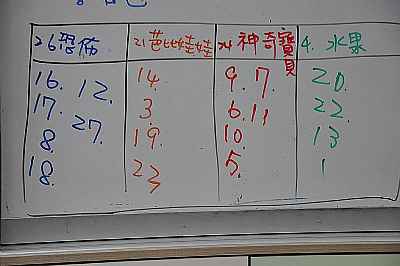 26恐怖 21芭比娃娃 24神奇寶貝 4. 水果
16. 12. 14. 9. 7. 20.
17. 27. 3. 6. 11 22.
8. 19. 10. 13
18. 23 5. 1